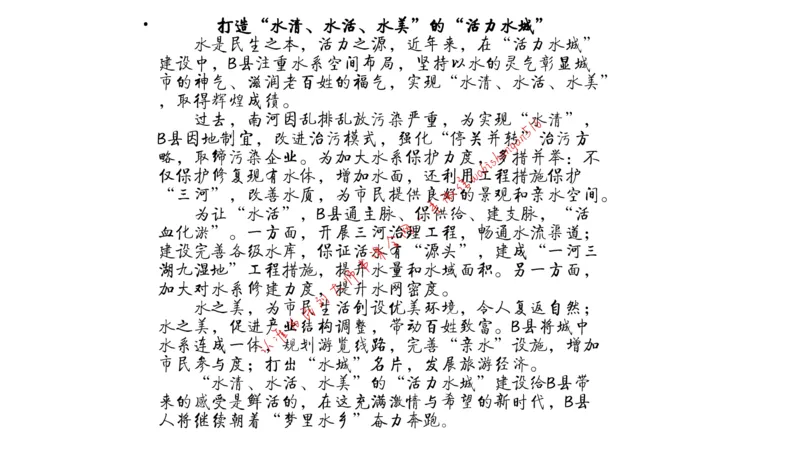 • 打造“水清、水活、水美”的“活力水城”
水是民生之本，活力之源，近年来，在“活力水城”
建设中，B县注重水系空间布局，坚持以水的灵气彰显城
市的神气、滋润老百姓的福气，实现“水清、水活、水美”
，取得辉煌成绩。
过去，南河因乱排乱放污染严重，为实现“水清”，
B县因地制宜，改进治污模式，强化“停关并转”治污方
略，取缔污染企业。为加大水系保护力度，多措并举：不
仅保护修复现有水体，增加水面，还利用工程措施保护
“三河”，改善水质，为市民提供良好的景观和亲水空间。
为让“水活”，B县通主脉、保供给、建支脉，“活
血化淤”。一方面，开展三河治理工程，畅通水流渠道；
建设完善各级水库，保证活水有“源头”，建成“一河三
湖九湿地”工程措施，提升水量和水域面积。另一方面，
加大对水系修建力度，提升水网密度。
水之美，为市民生活创设优美环境，令人复返自然；
水之美，促进产业结构调整，带动百姓致富。B县将城中
水系连成一体，规划游览线路，完善“亲水”设施，增加
市民参与度；打出“水城”名片，发展旅游经济。
“水清、水活、水美”的“活力水城”建设给B县带
来的感受是鲜活的，在这充满激情与希望的新时代，B县
人将继续朝着“梦里水乡”奋力奔跑。